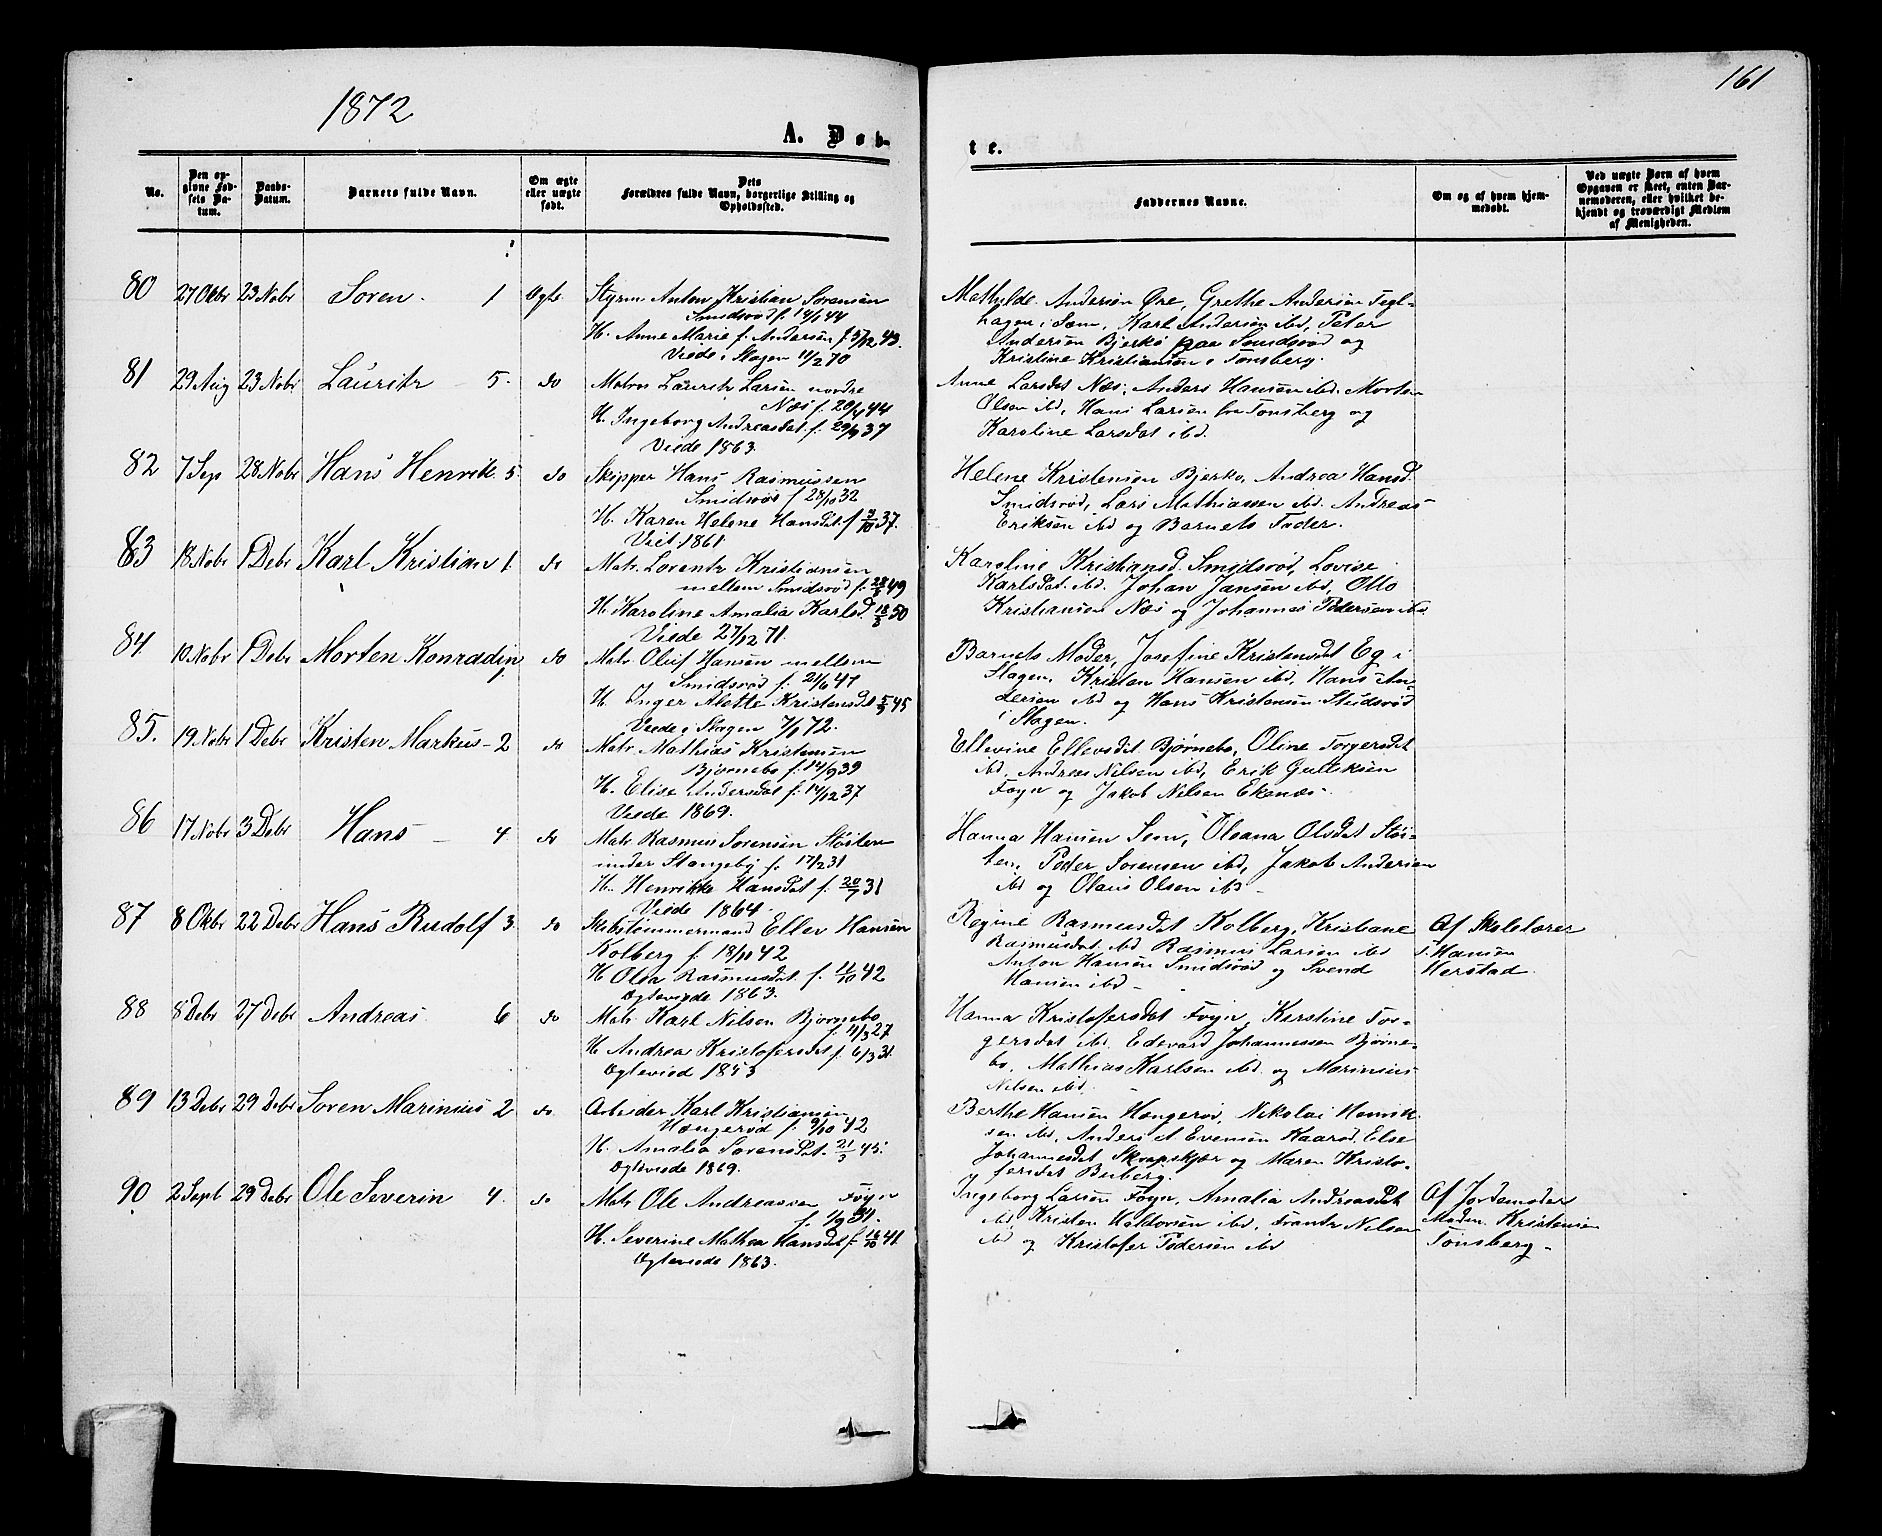 1872
161
A. Døb-
te.
No.
Den op-
givne Fød-
sels Da-
tum.
Daabs-
Datum.
Barnets fulde Navn.
Om ægte
eller uægte
født.
Dets
Forældres fulde Navn, borgerlige Stilling og
Opholdssted.
Faddernes Navne.
Om og af hvem hjem-
medøbt.
Ved uægte Børn af hvem
Opgaven er skeet, enten Bar-
nemoderen, eller hvilket be-
kjendt og troværdigt Medlem
af Menigheden.
80 27 Oktbr 23 Nobr Soren. 1 Ægte
Styrm Anton Kristian Sorensen
Smidsrød f. 14/1 44
H. Anne Marie f. Andersen f 5/12 43.
Viede i Slagen 11/2 70
Mathilde Andersen Øre, Grethe Andersen Tegl-
hagen i Sem, Karl Andersen ibd, Peter
Andersen Bjerkø paa Smidsrød og
Kristine Kristiansen i Tonsberg.
81 29 Aug 23 Nobr Lauritz 5. do
Matros Lauritz Larsen nordre
Næs f. 20/4 44
H. Ingeborg Andreasdat. f. 29/9 37
Viede 1863.
Anne Larsdat Næs, Anders Hansen ibd. Morten
Olsen ibd, Hans Larsen fra Tonsberg og
Karoline Larsdat ibd.
82 7 Sep 28 Nobr Hans Henrik. 5 do
Skipper Hans Rasmussen
Smidsrød f 28/10 32
H. Karen Helene Hansdat f 9/10 37.
Viet 1861.
Helene Kristensen Bjerko, Andrea Hansd.
Smidsrød, Lars Mathiassen ibd. Andreas
Eriksen ibd og Barnets Fader.
83 18 Nobr 1 Debr Karl Kristian 1. do
Matr. Lorentz Kristiansen
mellem Smidsrød f. 28/5 49
H. Karoline Amalia Karlsd. 18/5 50
Viede 27/12 71.
Karoline Kristiansd. Smidsrød, Lovise
Karlsdat. ibd. Johan Jansen ibd, Otto
Kristiansen Næs og Johannes Pedersen ibd
84. 10 Nobr 1 Debr Morten Konradin 1. do
Matr Oluf Hansen mellem
Smidsrød f. 21/6 47
H. Inger Alette Kristensdat 5/5 45
Viede i Slagen 7/1 72.
Barnets Moder, Josefine Kristensdat Eg i
Slagen, Kristen Hansen ibd, Hans An-
dersen ibd og Hans Kristensen
i Slagen.
85. 19 Nobr 1 Debr Kristen Markus 2 do
Matr. Mathias Kristensen
Bjornebo f. 14/9 39
H. Elise Andersdat f. 14/12 37
Viede 1869.
Ellevine Ellevsdat Bjørnebo, Oline Torgersdat
ibd. Andreas Nilsen ibd, Erik Gulliksen
Foyn og Jakob Nilsen Ekenæs.
86 17 Nobr 3 Debr Hans 4. do
Matr Rasmus Sorensen Støiten
under Stangeby f. 17/2 31
H. Henrikke Hansdat f. 20/7 31
Viede 1864.
Hanna Hansen Sem, Olsana Olsdat Støi-
ten, Peder Sorensen ibd, Jakob Andersen
ibd og Olaus Olsen ibd
87 8 Oktbr 22 Debr Hans Rudolf 3. do
Skibstømmermand Eller Hansen
Kolberg f. 18/11 42
H. Olea Rasmusdat f. 11/10 42
Ægteviede 1863.
Regine Rasmusdat Kolberg, Kristiane
Rasmusdat ibd Rasmus Larsen ibd
Anton Hansen Smidsrød og Svend
Hansen ibd
Af Skolelærer
Hansen
Herstad
88 8 Debr 27 Debr Andreas 6 do
Matr Karl Nilsen Bjornebo
f. 11/3 27
H. Andrea Kristofersdat f. 6/3 31.
Ægteviede 1853
Hanna Kristofersdat Foyn, Kerstine Tor-
gersdat ibd. Edevard Johannessen Bjørne-
bo, Mathias Karlsen ibd og Marinius
Nilsen ibd.
89 13 Debr 29 Debr Soren Marinius 2 do
Arbeider Karl Kristiansen
Hængerød f. 9/10 42
H. Amalia Sorensdat. 21/3 45.
Ægteviede 1869.
Berthe Hansen Hængerød, Nikolai Henrik-
sen ibd, Anders A Evensen Kaarød. Else
Johannesdat Skrapskjær og Maren Kristo-
fersdat Buberg.
90 2 Sept 29 Debr Ole Severin 4. do
Matr Ole Andreassen Foyn
f. 1/9 31.
H. Severine Mathea Hansdat f. 18/10 41
Ægteviede 1863.
Ingeborg Larsen Foyn, Amalia Andreasdat
ibd, Kristen Haldorsen ibd, Frantz Nilsen
ibd og Kristofer Pedersen ibd
Af Jordemoder
Madm. Kristensen
Tonsberg